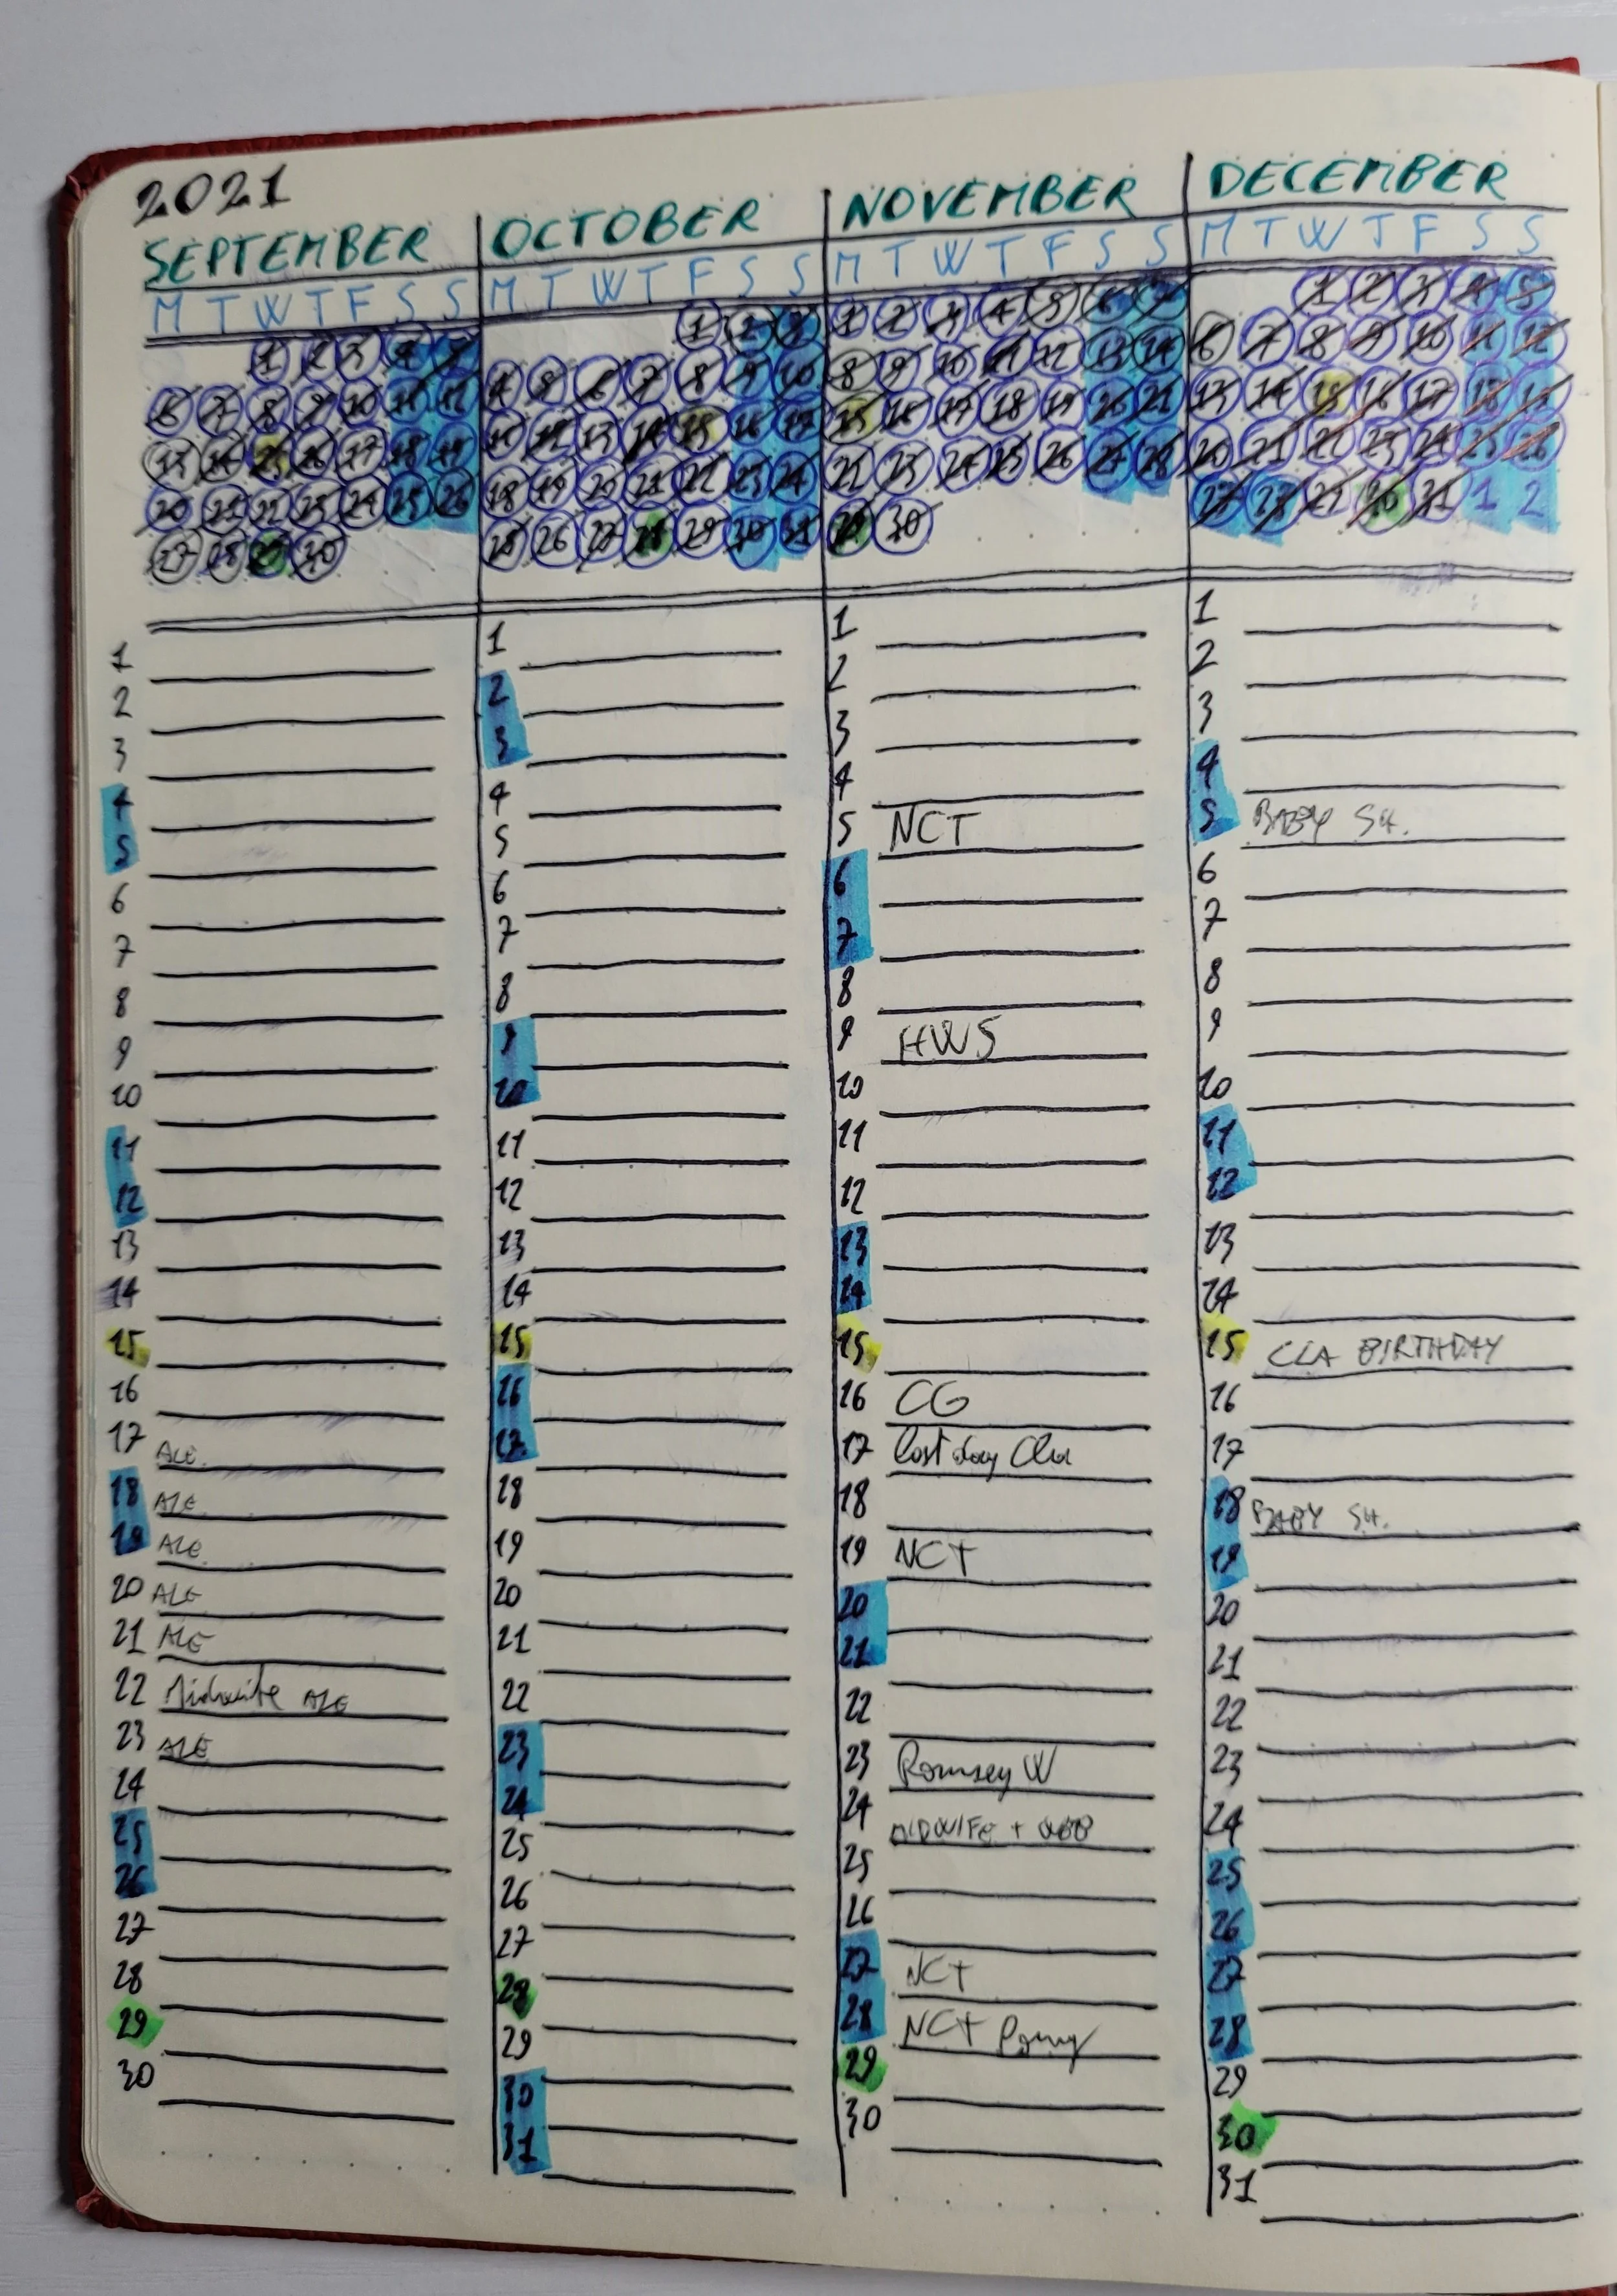 2021
SEPTEMBER
M T W T F S S
1 2 3 4 5
6 7 8 9 10 11 12
13 14 15 16 17 18 19
20 21 22 23 24 25 26
27 28 29 30
1
2
3
4
5
6
7
8
9
10
11
12
13
14
15
16
17 ALE
18 ALE
19 ALE
20 ALE
21 ALE
22 Midwife ALE
23 ALE
24
25
26
27
28
29
30
OCTOBER
M T W T F S S
1 2 3
4 5 6 7 8 9 10
11 12 13 14 15 16 17
18 19 20 21 22 23 24
25 26 27 28 29 30 31
1
2
3
4
5
6
7
8
9
10
11
12
13
14
15
16
17
18
19
20
21
22
23
24
25
26
27
28
29
30
31
NOVEMBER
M T W T F S S
1 2 3 4 5 6 7
8 9 10 11 12 13 14
15 16 17 18 19 20 21
22 23 24 25 26 27 28
29 30
1
2
3
4
5 NCT
6
7
8
9 HWS
10
11
12
13
14
15
16 CG
17 Last day Cla
18
19 NCT
20
21
22
23 Romsey W
24 MIDWIFE +
25
26
27 NCT
28 NCT
29
30
DECEMBER
M T W T F S S
1 2 3 4 5
6 7 8 9 10 11 12
13 14 15 16 17 18 19
20 21 22 23 24 25 26
27 28 29 30 31 1 2
1
2
3
4
5 BABY SH.
6
7
8
9
10
11
12
13
14
15 CLA BIRTHDAY
16
17
18 BABY SH.
19
20
21
22
23
24
25
26
27
28
29
30
31